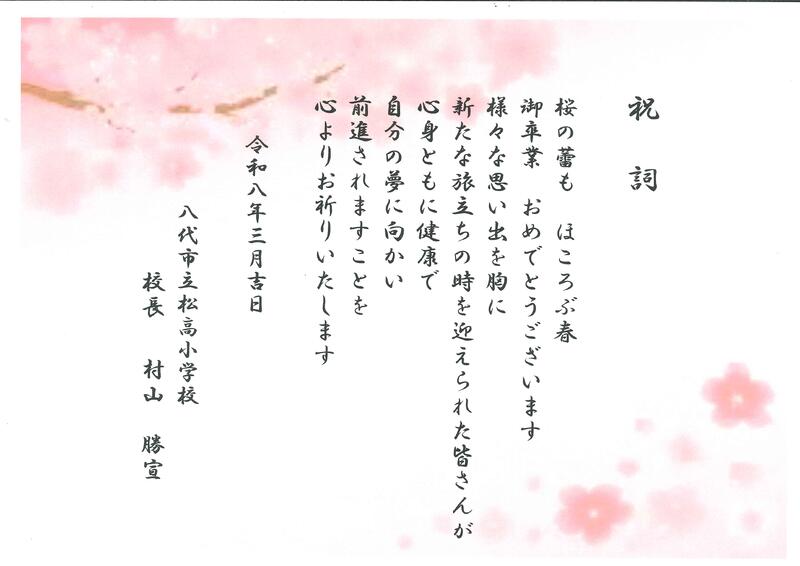 祝　詞
桜の蕾も　ほころぶ春
御卒業　おめでとうございます
様々な思い出を胸に
新たな旅立ちの時を迎えられた皆さんが
心身ともに健康で
自分の夢に向かい
前進されますことを
心よりお祈りいたします
令和八年三月吉日
八代市立松高小学校
校長　村山　勝宣